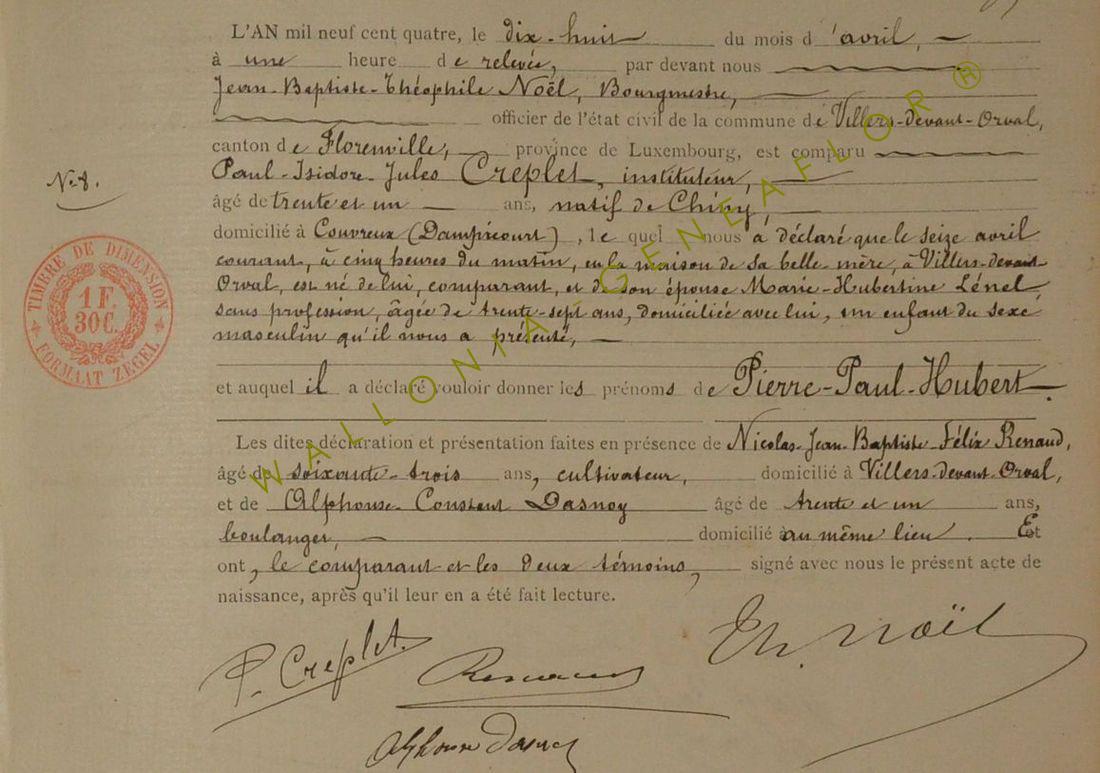 L'AN mil neuf cent quatre, le dix-huit du mois d'avril,
à une heure de relevée, par devant nous
Jean-Baptiste-Théophile Noël, Bourgmestre,
officier de l'état civil de la commune de Villers-devant-Orval,
canton de Florenville, province de Luxembourg, est comparu
Paul-Isidore-Jules Creplet, instituteur,
N° 8.
âgé de trente et un ans, natif de Chiny,
domicilié à Couvreux (Dampicourt), lequel nous a déclaré que le seize avril
courant, à cinq heures du matin, en la maison de sa belle-mère, à Villers-devant-
Orval, est né de lui, comparant, et de son épouse Marie-Hubertine Lénel,
sans profession, âgée de trente-sept ans, domiciliée avec lui, un enfant du sexe
masculin qu'il nous a présenté,
TIMBRE DE DIMENSION
1 F.
30 C.
FORMAAT ZEGEL
et auquel il a déclaré vouloir donner les prénoms de Pierre-Paul-Hubert.
Les dites déclaration et présentation faites en présence de Nicolas-Jean-Baptiste-Félix Renaud,
âgé de soixante-trois ans, cultivateur, domicilié à Villers-devant-Orval,
et de Alphonse-Constant Dasnoy âgé de trente et un ans,
boulanger, domicilié au même lieu. Et
ont, le comparant et les deux témoins, signé avec nous le présent acte de
naissance, après qu'il leur en a été fait lecture.
P. Creplet.
Renaud
Th. Noël
Alphonse Dasnoy
WALLONIA-GENEAFLOR ®